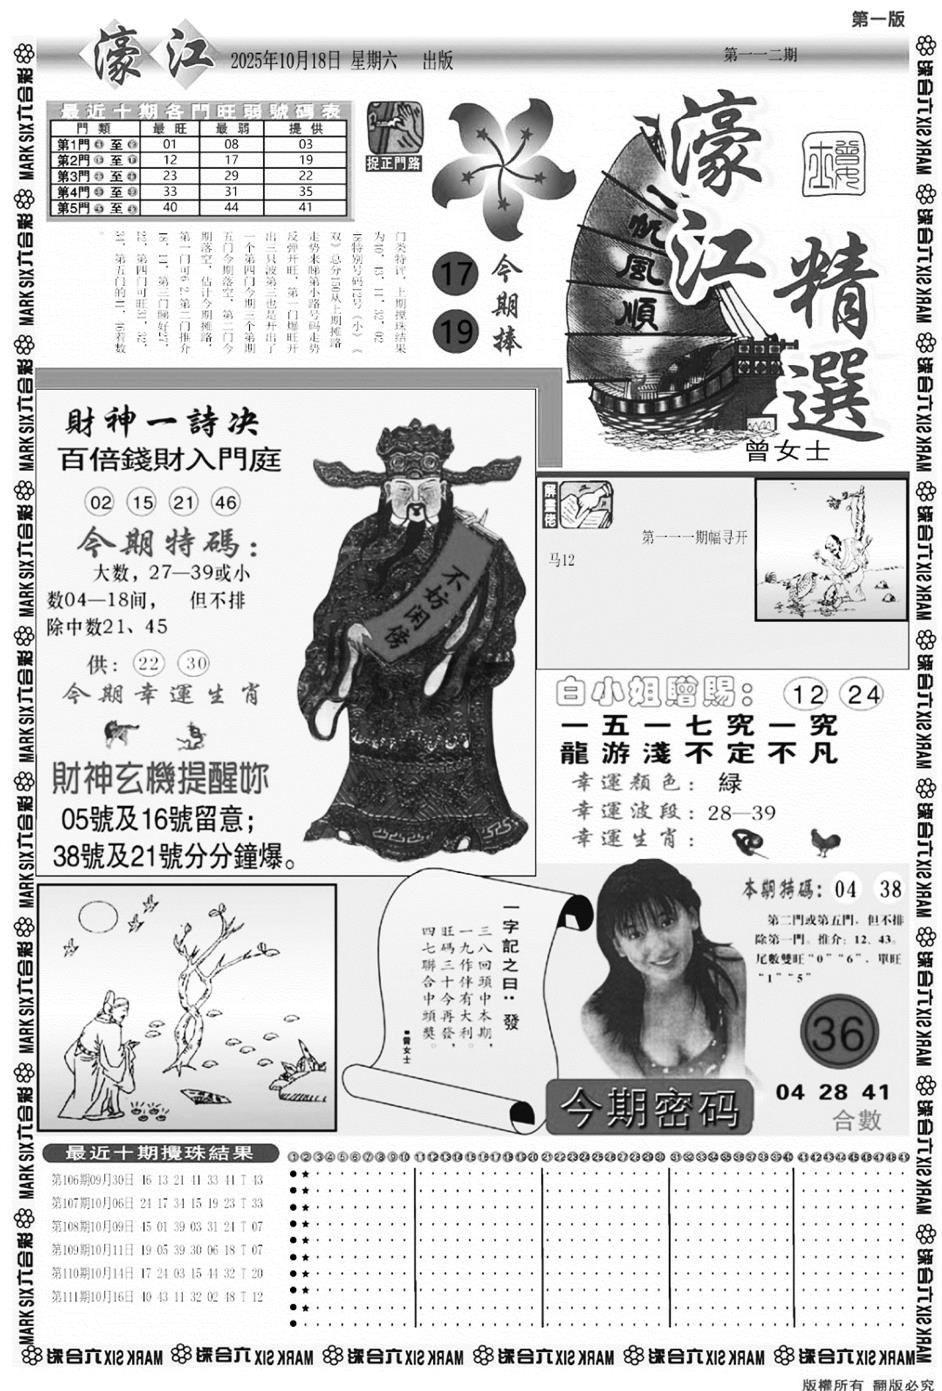 第一版
濠江
2025年10月18日 星期六 出版
第一一二期
最近十期各門旺弱號碼表
門類 最旺 最弱 提供
第1門 至 01 08 03
第2門 至 12 17 19
第3門 至 23 29 22
第4門 至 33 31 35
第5門 至 40 44 41
捉正門路
门类特评，上期搅珠结果
为10、13、11、32、02、
48特别号码12号（小）《
双》总分150从上期摊路
走势来睇第小路号码走势
反弹开旺，第一门爆旺开
出三只波第三也是开出了
一个第四门今期三个第期
五门今期落空，第二门今
期落空，估计今期摊路，
第一门可6、2、第二门推介
18、11、第三门睇好27、
22、第四门可旺31、32、
31、第五门的41、16着数
17
19
今期捧
濠江
精選
曾女士
一帆風順
財神一詩决
百倍錢財入門庭
02 15 21 46
今期特碼：
大数，27—39或小
数04—18间， 但不排
除中数21、45
供：22 30
今期幸運生肖
財神玄機提醒妳
05號及16號留意；
38號及21號分分鐘爆。
不妨闲傍
解畫佬
第一一一期幅寻开
马12
白小姐贈賜：12 24
一五一七究一究
龍游淺不定不凡
幸運顏色：緑
幸運波段：28—39
幸運生肖：
一字記之曰：發
三八回頭中本期，
一九作伴有大利。
旺碼三十今再發，
四七聯合中頭獎。
■曾女士
本期特碼：04 38
第二門或第五門，但不排
除第一門。推介：12、43。
尾數雙旺“0”“6”，單旺
“1”“5”
36
今期密码
04 28 41
合數
最近十期攪珠結果
第106期09月30日 46 13 21 41 33 44 T 43
第107期10月06日 24 17 34 15 19 23 T 33
第108期10月09日 45 01 39 03 31 24 T 07
第109期10月11日 19 05 39 30 06 18 T 07
第110期10月14日 17 24 03 15 44 32 T 20
第111期10月16日 40 43 11 32 02 48 T 12
MARK SIX六合彩
版權所有 翻版必究